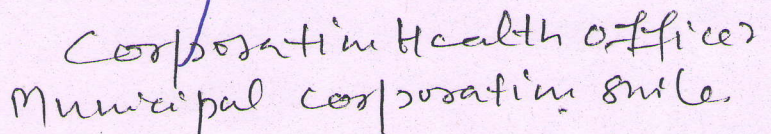 Corporation Health Officer
Municipal corporation